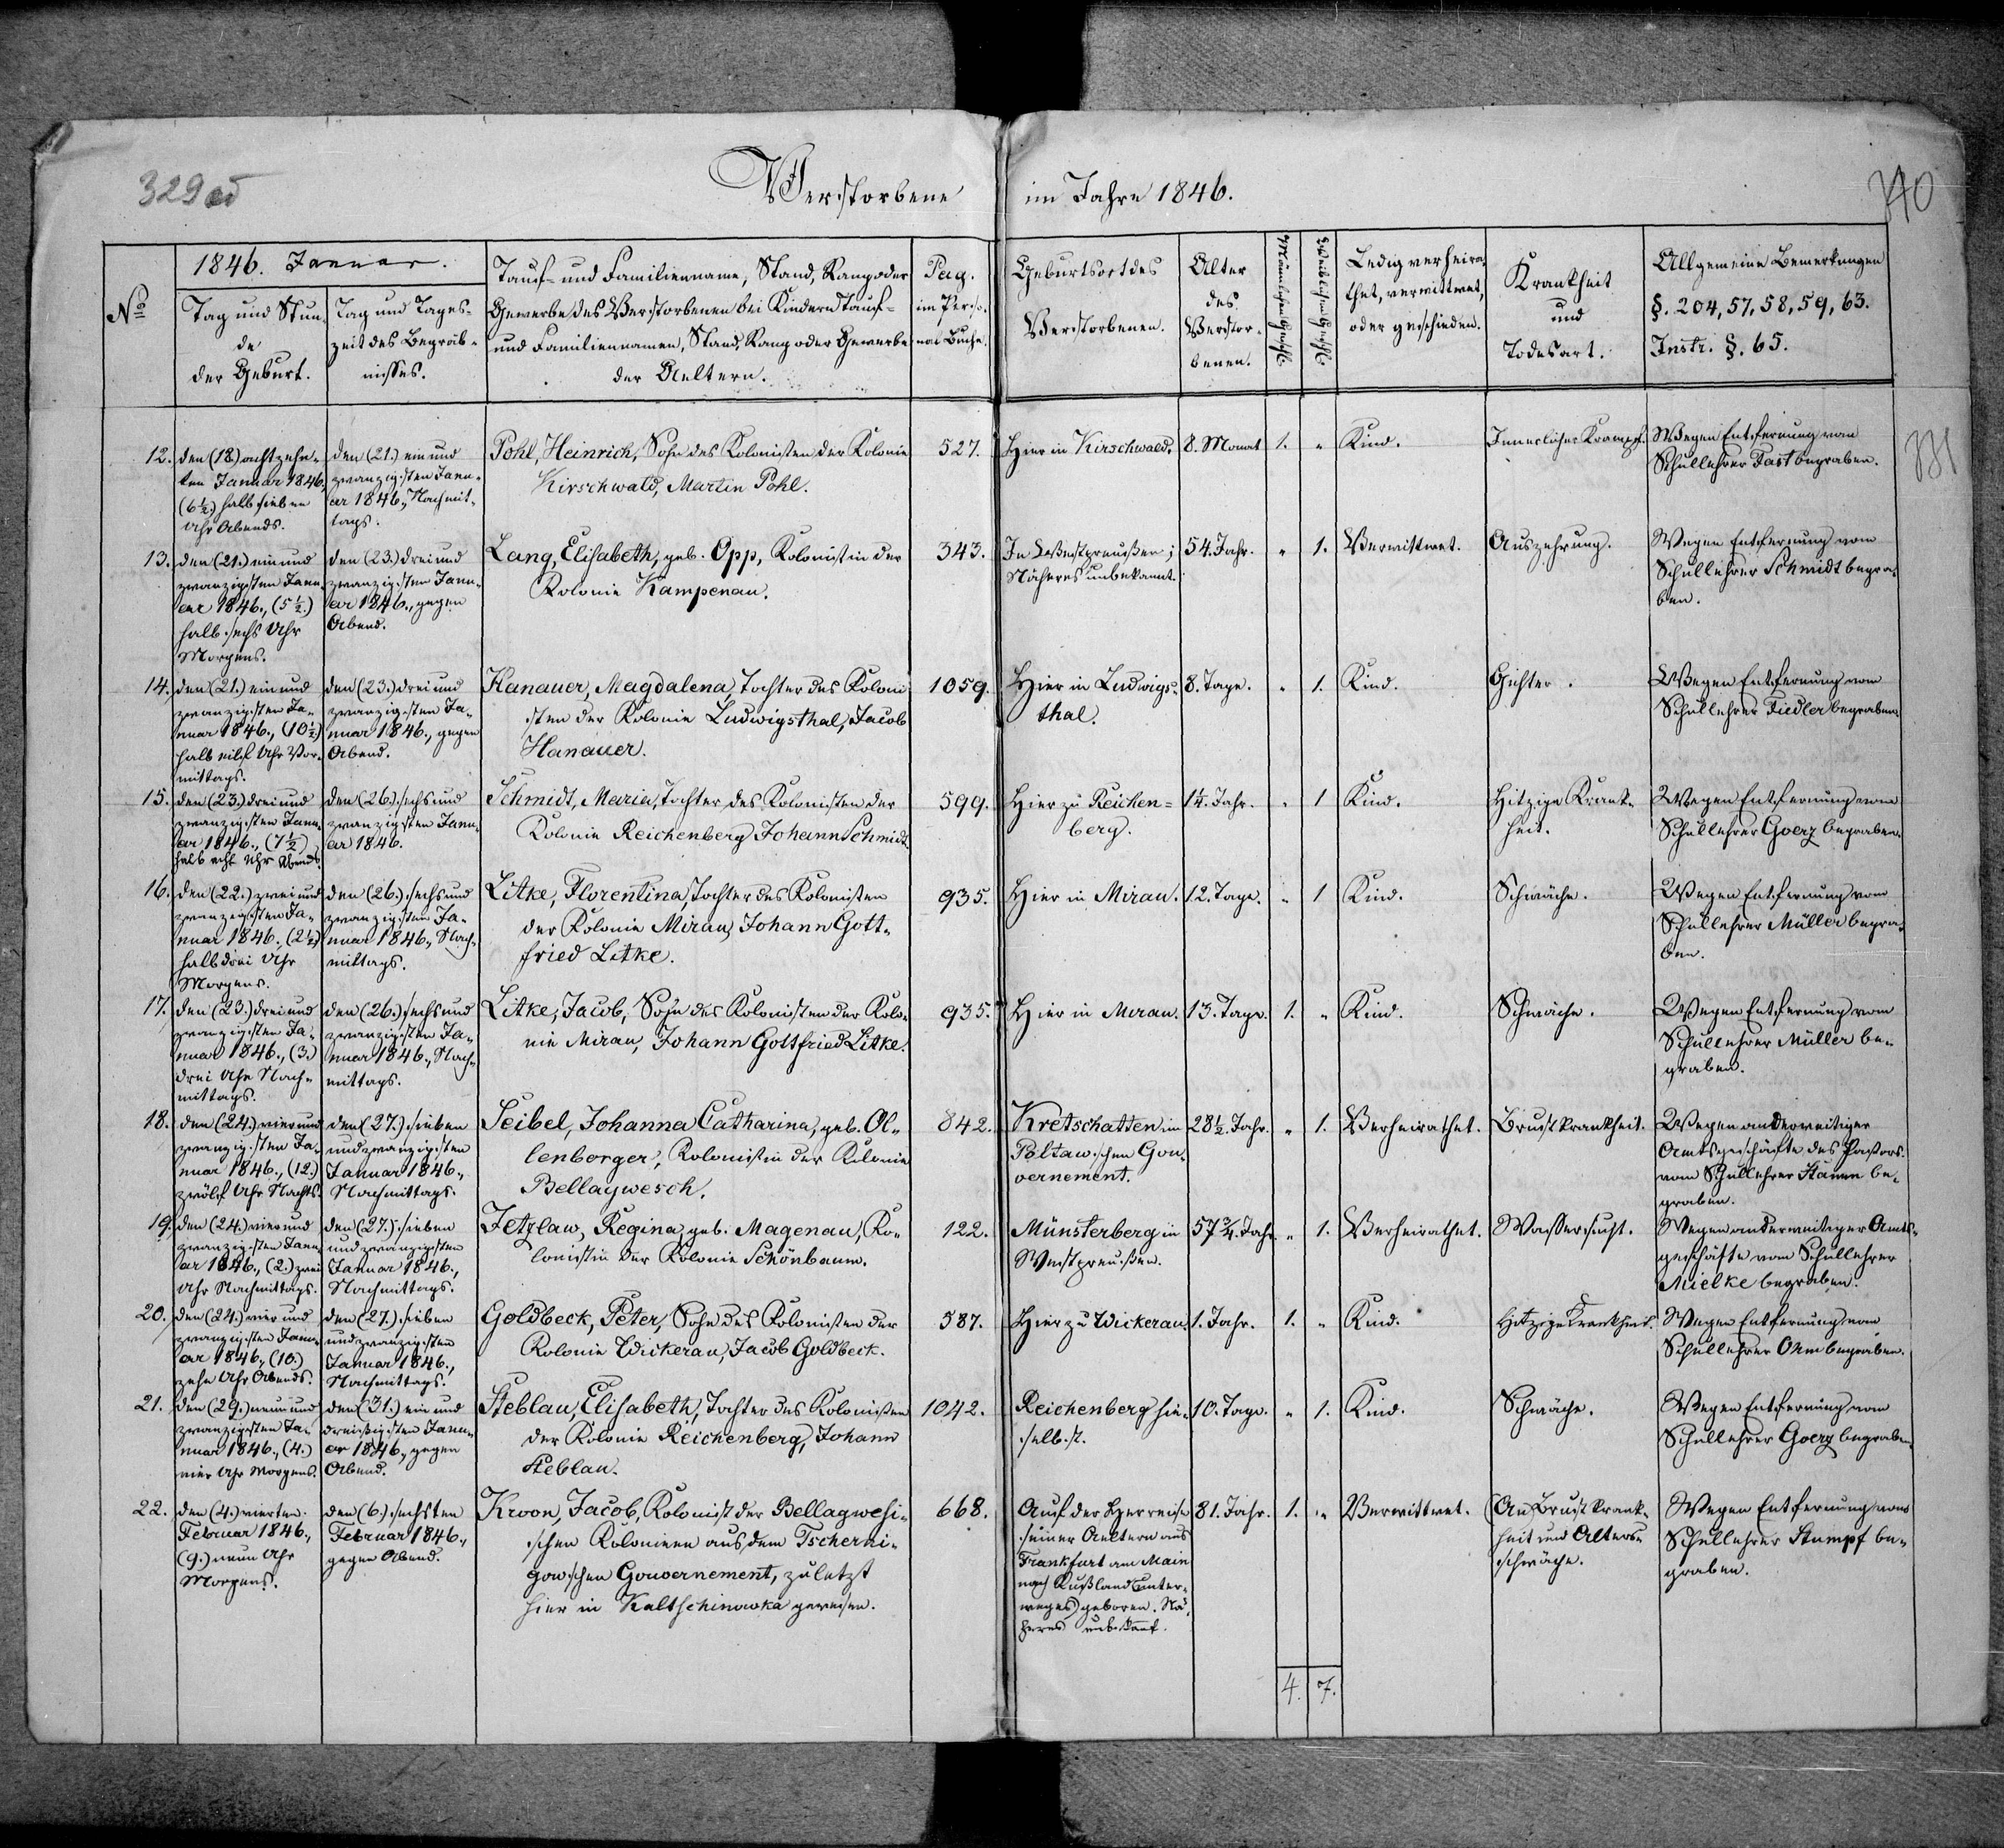 329 об
340
331
Verstorbene im Jahre 1846.
No
1846. Januar.
Tag und Stun-
de
der Geburt.
Tag und Tages-
zeit des Begräb-
nisses.
Tauf- und Familienname, Stand, Rang oder
Gewerbe des Verstorbenen bei Kindern Tauf-
und Familiennamen, Stand, Rang oder Gewerbe
der Aeltern.
Pag.
im Perso-
nal Buche.
Geburtsort des
Verstorbenen.
Alter
des
Verstor-
benen.
Männlichen Geschl.
Weiblichen Geschl.
Ledig verheira-
thet, verwittwet,
oder geschieden.
Krankheit
und
Todesart.
Allgemeine Bemerkungen
§. 204, 57, 58, 59, 63.
Instr. §. 65.
12.
den (18.) achtzehn-
ten Januar 1846.,
(6½.) halb sieben
Uhr Abends.
den (21.) ein und
zwanzigsten Janu-
ar 1846., Nachmit-
tags.
Pohl, Heinrich, Sohn des Kolonisten der Kolonie
Kirschwald, Martin Pohl.
527.
Hier in Kirschwald.
8. Monat
1.
"
Kind.
Innerlicher Krampf.
Wegen Entfernung vom
Schullehrer Fast begraben.
13.
den (21.) ein und
zwanzigsten Janu-
ar 1846., (5½.)
halb sechs Uhr
Morgens.
den (23.) drei und
zwanzigsten Janu-
ar 1846., gegen
Abend.
Lang, Elisabeth, geb. Opp, Kolonistin der
Kolonie Kampenau.
343.
In Westpreußen;
Näheres unbekannt.
54. Jahr.
"
1.
Verwittwet.
Auszehrung.
Wegen Entfernung vom
Schullehrer Schmidt begra-
ben.
14.
den (21.) ein und
zwanzigsten Ja-
nuar 1846., (10½)
halb eilf Uhr Vor-
mittags.
den (23.) drei und
zwanzigsten Ja-
nuar 1846., gegen
Abend.
Hanauer, Magdalena, Tochter des Koloni-
sten der Kolonie Ludwigsthal, Jacob
Hanauer.
1059.
Hier in Ludwigs-
thal.
8. Tage.
"
1.
Kind.
Gichter.
Wegen Entfernung vom
Schullehrer Fiedler begraben.
15.
den (23.) drei und
zwanzigsten Janu-
ar 1846., (7½)
halb acht Uhr Abends.
den (26.) sechs und
zwanzigsten Janu-
ar 1846.
Schmidt, Maria, Tochter des Kolonisten der
Kolonie Reichenberg Johann Schmidt.
599.
Hier zu Reichen-
berg.
1¼. Jahr.
"
1
Kind.
Hitzige Krank-
heit.
Wegen Entfernung vom
Schullehrer Goerz begraben.
16.
den (22.) zwei und
zwanzigsten Ja-
nuar 1846., (2½)
halb drei Uhr
Morgens.
den (26.) sechs und
zwanzigsten Ja-
nuar 1846., Nach-
mittags.
Litke, Florentina, Tochter des Kolonisten
der Kolonie Mirau, Johann Gott-
fried Litke.
935.
Hier in Mirau.
12. Tage.
"
1
Kind.
Schwäche.
Wegen Entfernung vom
Schullehrer Müller begra-
ben.
17.
den (23.) drei und
zwanzigsten Ja-
nuar 1846., (3.)
drei Uhr Nach-
mittags.
den (26.) sechs und
zwanzigsten Ja-
nuar 1846., Nach-
mittags.
Litke, Jacob, Sohn des Kolonisten der Kolo-
nie Mirau, Johann Gottfried Litke.
935.
Hier in Mirau.
13. Tage.
1.
"
Kind.
Schwäche.
Wegen Entfernung vom
Schullehrer Müller be-
graben.
18.
den (24.) vier und
zwanzigsten Ja-
nuar 1846., (12.)
zwölf Uhr Nachts.
den (27.) sieben
und zwanzigsten
Januar 1846.,
Nachmittags.
Seibel, Johanna Catharina, geb. Ol-
lenborger, Kolonistin der Kolonie
Bellagwesch.
842.
Kretschatten im
Poltawschen Gou-
vernement.
28½. Jahr.
"
1.
Verheirathet.
Brustkrankheit.
Wegen anderweitiger
Amtsgeschäfte des Pastors
vom Schullehrer Stamm be-
graben.
19.
den (24.) vier und
zwanzigsten Janu-
ar 1846., (2.) zwei
Uhr Nachmittags.
den (27.) sieben
und zwanzigsten
Januar 1846.,
Nachmittags.
Zetzlaw, Regina, geb. Magenau, Ko-
lonistin der Kolonie Schönbaum.
122.
Münsterberg in
Westpreußen.
57¾. Jahr.
"
1.
Verheirathet.
Wassersucht.
Wegen anderweitiger Amts-
geschäfte vom Schullehrer
Mielke begraben.
20.
den (24.) vier und
zwanzigsten Janu-
ar 1846., (10.)
zehn Uhr Abends.
den (27.) sieben
und zwanzigsten
Januar 1846.,
Nachmittags.
Goldbeck, Peter, Sohn des Kolonisten der
Kolonie Wickerau, Jacob Goldbeck.
587.
Hier zu Wickerau.
1. Jahr.
1.
"
Kind.
Hitzige Krankheit.
Wegen Entfernung vom
Schullehrer Ohm begraben.
21.
den (29.) neun und
zwanzigsten Ja-
nuar 1846., (4.)
vier Uhr Morgens.
den (31.) ein und
dreißigsten Janu-
ar 1846., gegen
Abend.
Steblau, Elisabeth, Tochter des Kolonisten
der Kolonie Reichenberg, Johann
Steblau.
1042.
Reichenberg hie-
selbst.
10. Tage.
"
1.
Kind.
Schwäche.
Wegen Entfernung vom
Schullehrer Goerz begraben.
22.
den (4.) vierten
Februar 1846.,
(9.) neun Uhr
Morgens.
den (6.) sechsten
Februar 1846.,
gegen Abend.
Kroon, Jacob, Kolonist der Bellagwesi-
schen Kolonieen aus dem Tscherni-
gowschen Gouvernement, zuletzt
hier in Kaltschinowka gewesen.
668.
Auf der Herreise
seiner Aeltern aus
Frankfurt am Main
nach Rußland (unter-
weges) geboren. Nä-
heres unbekannt.
81. Jahr.
1.
"
Verwittwet.
(An) Brustkrank-
heit und Alters-
schwäche.
Wegen Entfernung vom
Schullehrer Stumpf be-
graben.
4.
7.